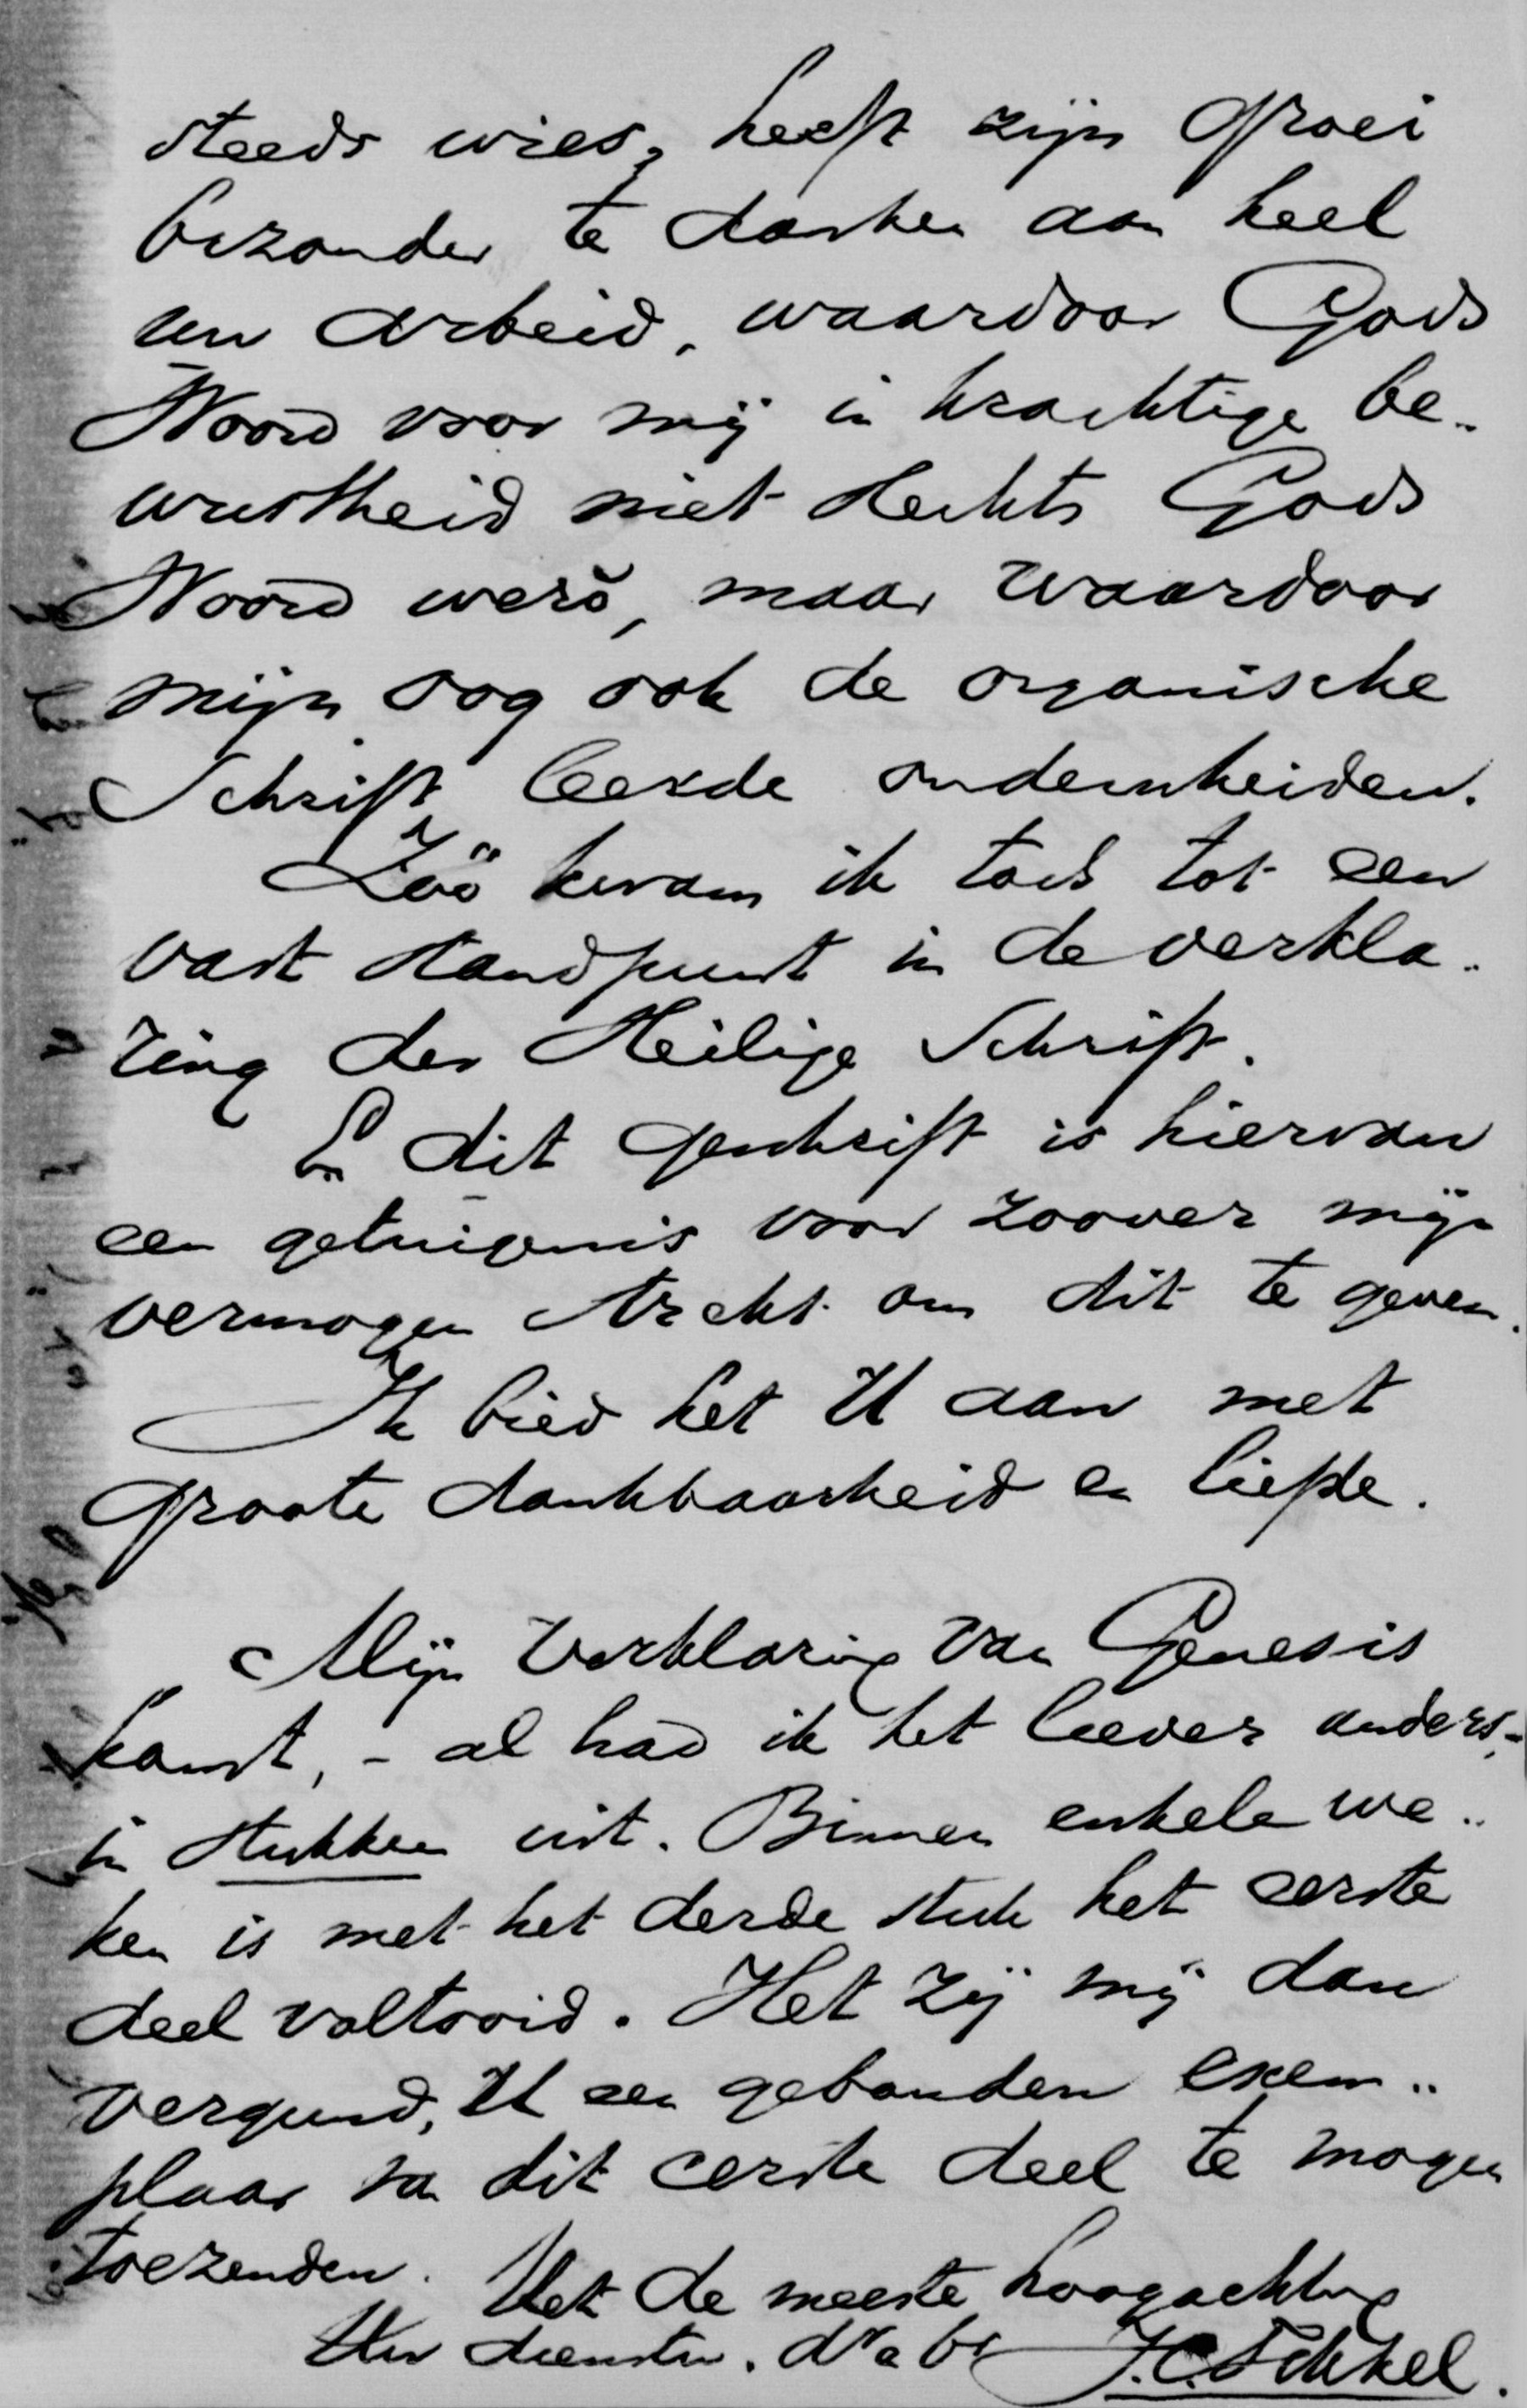 steeds wies, heeft zijn groei
bizonder te danken aan heel
uw arbeid, waardoor Gods
Woord voor mij in krachtige be-
wustheid niet slechts Gods
Woord werd, maar waardoor
mijn oog ook de organische
Schrift leerde onderscheiden.
Zóó kwam ik toen tot een
vast standpunt in de verkla-
ring der Heilige Schrift.
En dit geschrift is hiervan
een getuigenis voor zoover mijn
vermogen strekt om dit te geven.
Ik bied het U aan met
groote dankbaarheid en liefde.
Mijn verklaring van Genesis
komt, - al had ik het liever anders, -
in stukken uit. Binnen enkele we-
ken is met het derde stuk het eerste
deel voltooid. Het zij mij dan
vergund, U een gebonden exem-
plaar van dit eerste deel te mogen
toezenden. Met de meeste hoogachting
Uw dienstw. dr. en br. J.C. Sikkel.